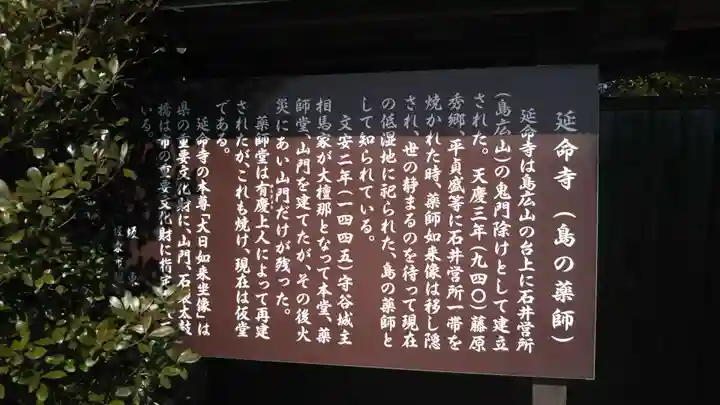 延命寺（島の薬師）
延命寺は島広山の台上に石井営所
（島広山）の鬼門除けとして建立
された。天慶三年（九四〇）藤原
秀郷、平貞盛等に石井営所一帯を
焼かれた時、薬師如来像は移し隠
され、世の静まるのを待って現在
の低湿地に祀られた、島の薬師と
して知られている。
文安二年（一四四五）守谷城主
相馬家が大檀那となって本堂、薬
師堂、山門を建てたが、その後火
災にあい山門だけが残った。
薬師堂は有慶上人によって再建
されたが、これも焼け、現在は仮堂
である。
延命寺の本尊「大日如来坐像」は
県の重要文化財に、山門、石太鼓
橋は市の重要文化財に指
いる。
坂東